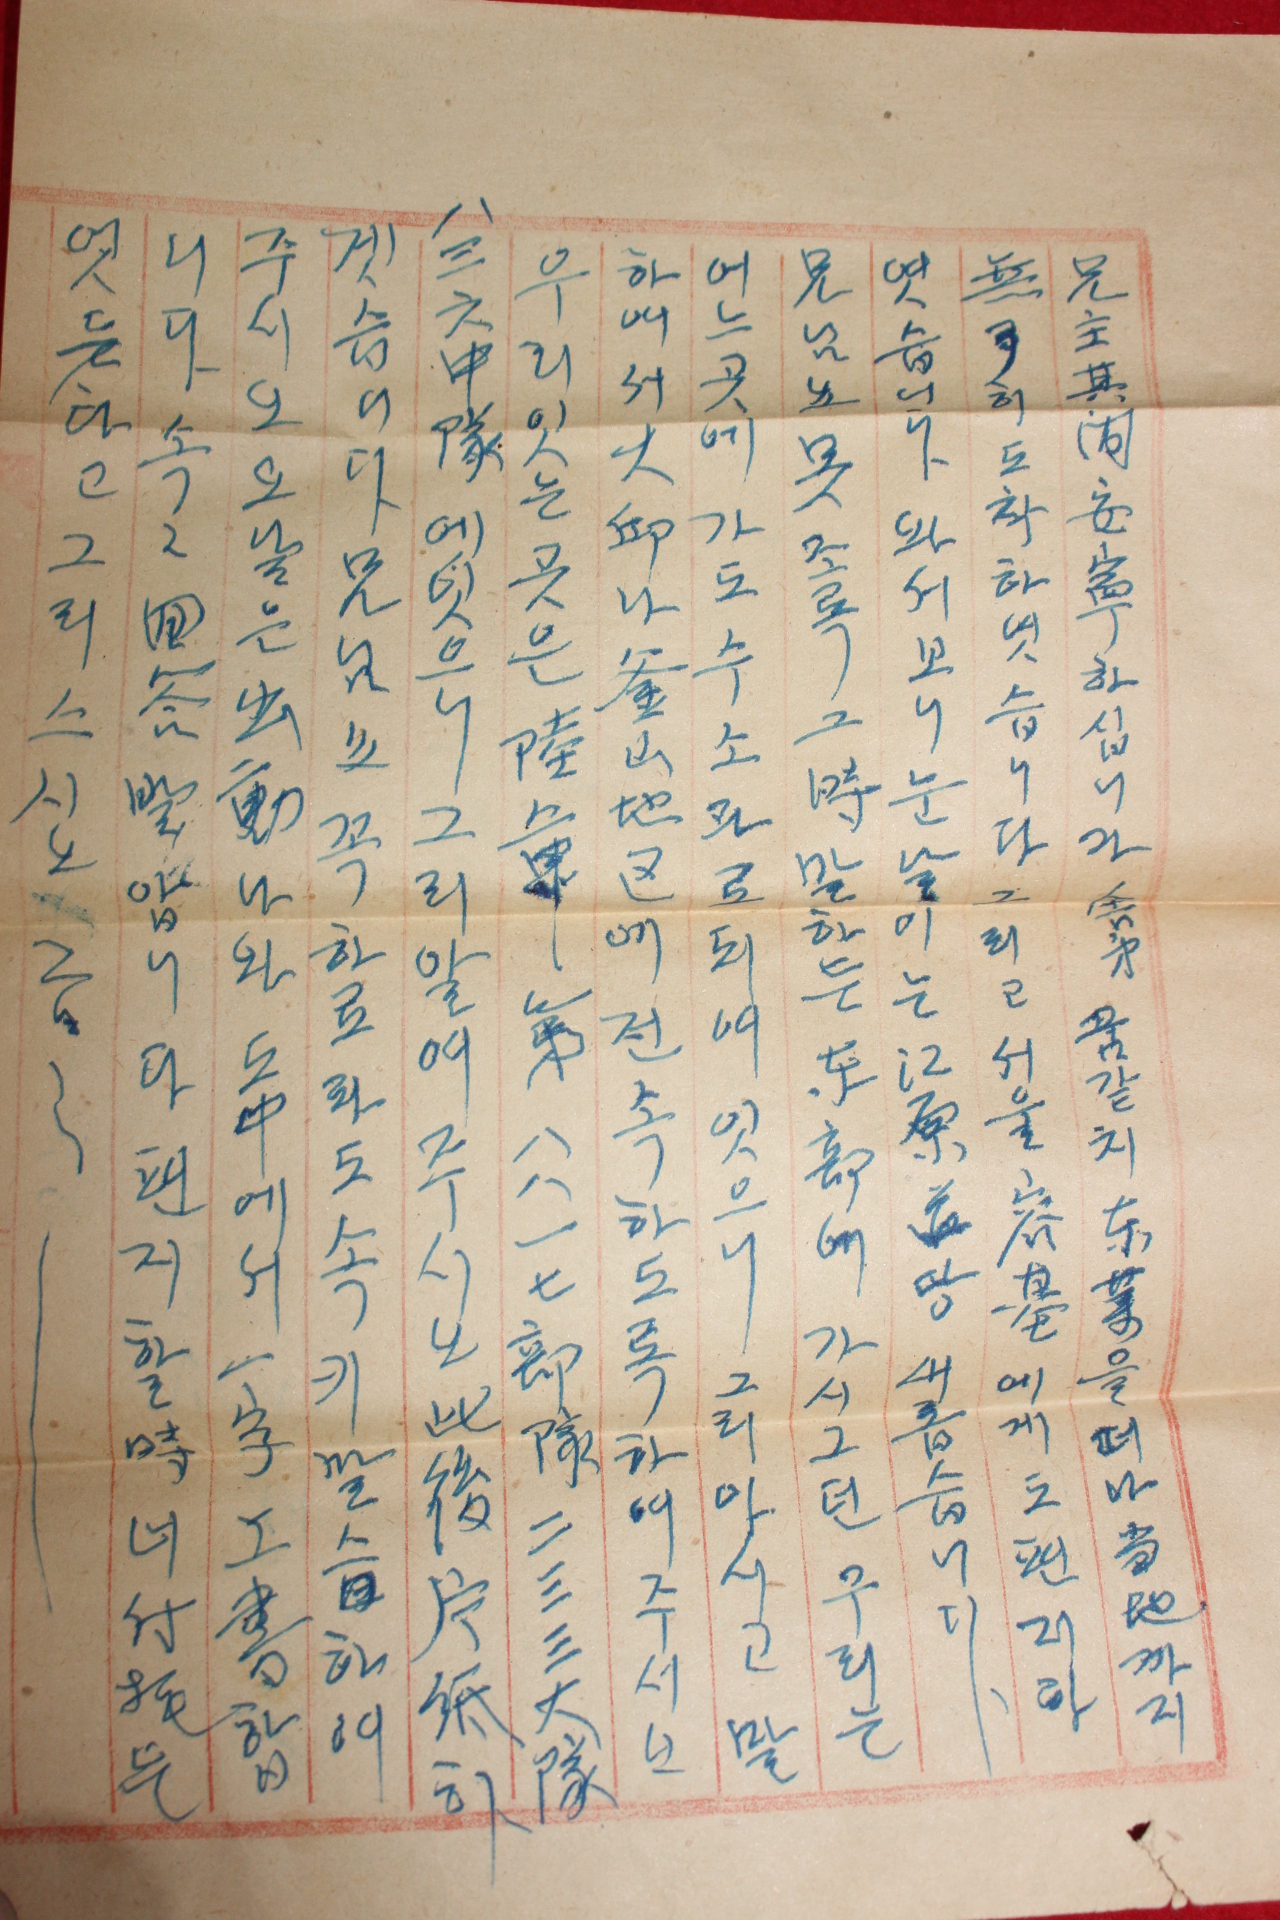 兄主其間安寧하십니가 舍弟 꿈같치 東葉을떠나当地까지
無事히도착하엿습니다 그리고 서울 에게도편지하
엿습니다 와서보니눈날이는江原道땅 새롭습니다
兄님 못조록 그時말하든 東部에 가시그던 우리는
어느곳에 가도 수소 되여 잇으니 그리아시고 말
하여서 大邱나釜山地区에 전속하도록하여주서요
우리잇는곳은 陸 第八八一七部隊 二三三大隊
八三六中隊에잇으니 그리알여주시요 此後片紙하
겟습니다 兄님 꼭하로라도속키말슴하여
주시요 오날은出動나와 도中에서 一字上書합
니다 속々回答 바랍니다 편지할時
엿든하고그리스시요 그럼